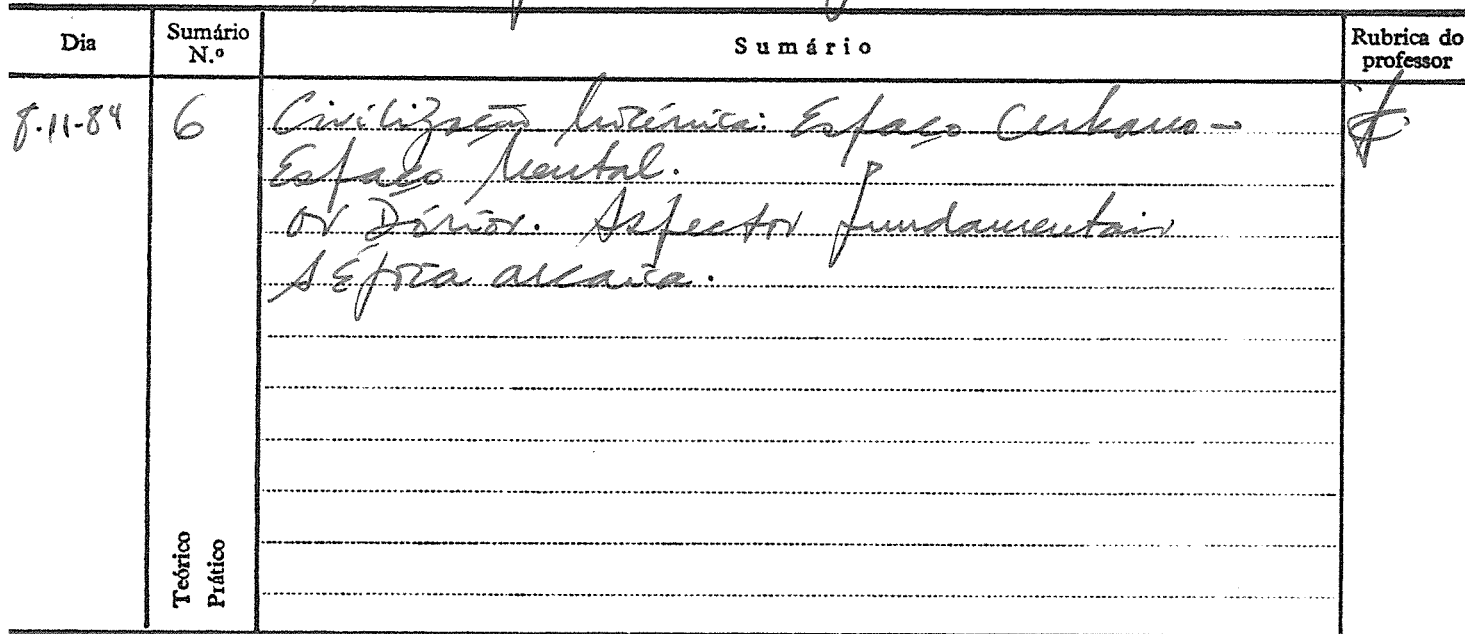 Dia
Sumário N.º
Sumário
Rubrica do professor
8-11-84
6
Civilização Micénica: Espaço Urbano -
Espaço Mental.
Os Dórios. Aspectos fundamentais
A Época arcaica.
Teórico
Prático